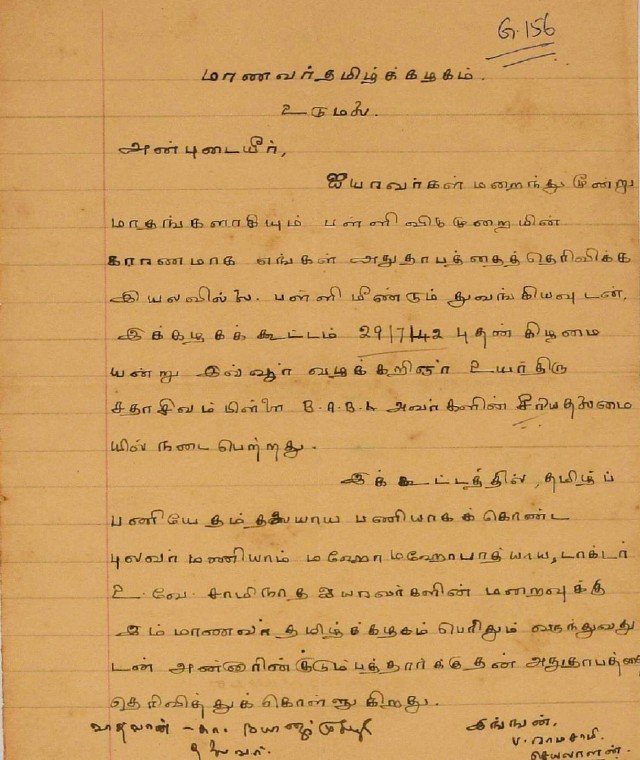 G.156
மாணவர்தமிழ்க்கழகம்.
உடுமலை.
அன்புடையீர்,
ஐயாவர்கள் மறைந்து மூன்று
மாதங்களாகியும் பள்ளிவிடுமுறையின்
காரணமாக எங்கள் அனுதாபத்தைத்தெரிவிக்க
இயலவில்லை. பள்ளி மீண்டும் துவங்கியவுடன்.
இக்கழகக் கூட்டம் 29/7/42 புதன் கிழமை
யன்று இவ்வூர் வழக்கறிஞர் உயர்திரு
சதாசிவம்பிள்ளை B.A.B.L அவர்களின் சீரியதலைமை
யில் நடைபெற்றது.
இக் கூட்டத்தில், தமிழ்ப்
பணியே தம் தலையாய பணியாகக் கொண்ட
புலவர்மணியாம் மஹோமஹோபாத்யாய, டாக்டர்
உ.வே. சாமிநாத ஐயரவர்களின் மறைவுக்கு
இம் மாணவர் தமிழ்க்கழகம் பெரிதும் வருந்துவது
டன் அன்னாரின் குடும்பத்தார்க்கு தன் அனுதாபத்தை
தெரிவித்துக் கொள்ளுகிறது.
தலைவர். இங்ஙன்,
V. ராமசாமி.
செயலாளன்.